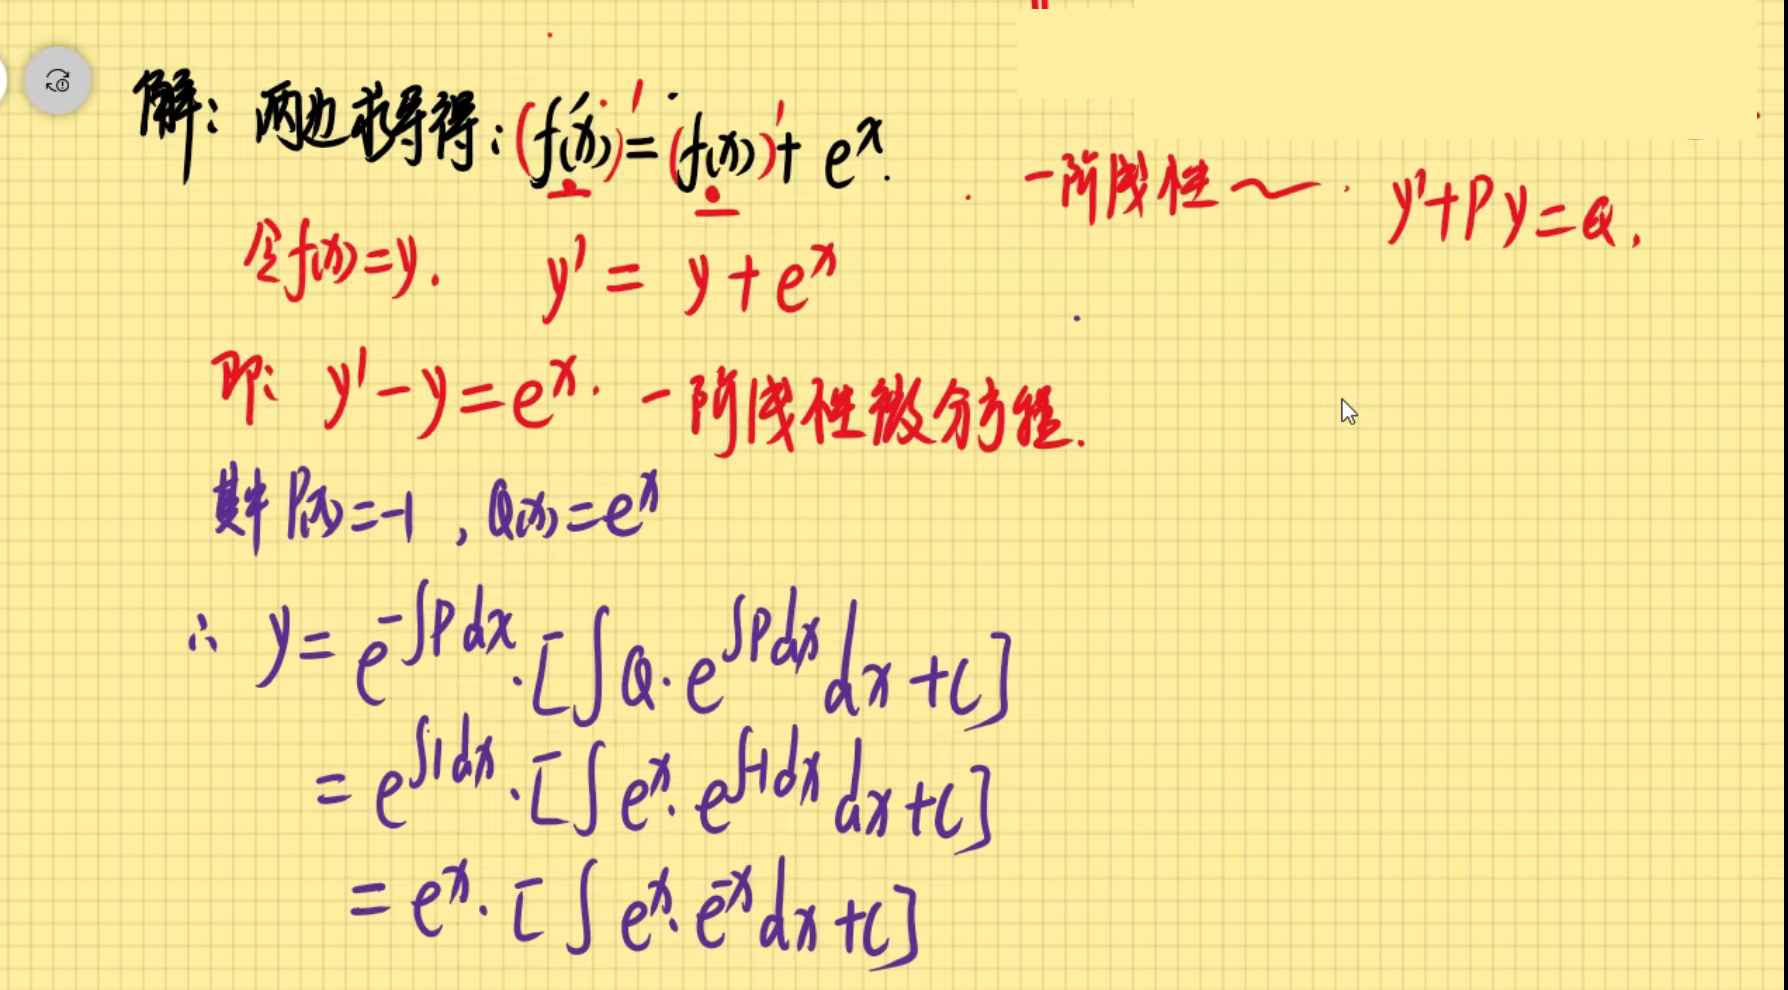 解：两边求导得：(f(x))'=(f(x))'+ e^x.
一阶线性～ y'+Py=Q.
令f(x)=y. y' = y+e^x
即： y'-y=e^x. 一阶线性微分方程.
其中 P(x)=-1 , Q(x)=e^x
∴ y= e^{-∫Pdx}·[∫Q·e^{∫Pdx}dx+C]
= e^{∫1dx}·[∫e^x·e^{∫-1dx}dx+C]
= e^x·[∫e^x·e^{-x}dx+C]